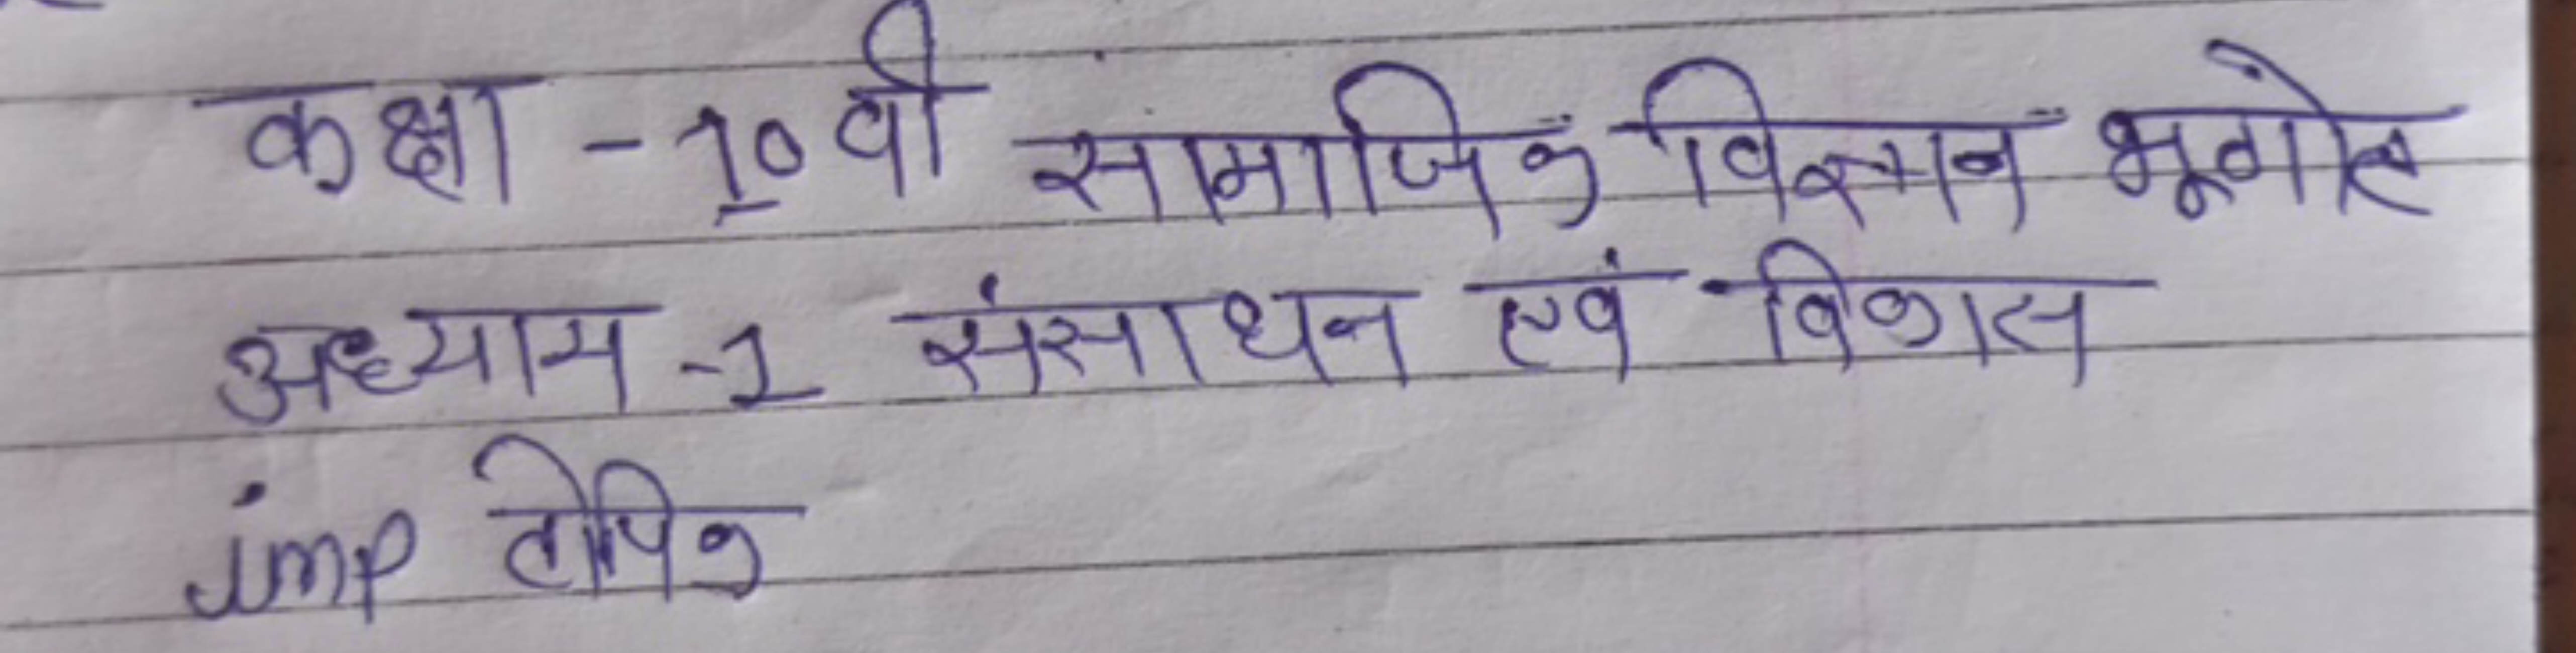 कक्षा - 10वी सामाजिक विज्ञान भूगोल
अध्याय -1 संसाधन एवं विकास
imp टोपिक